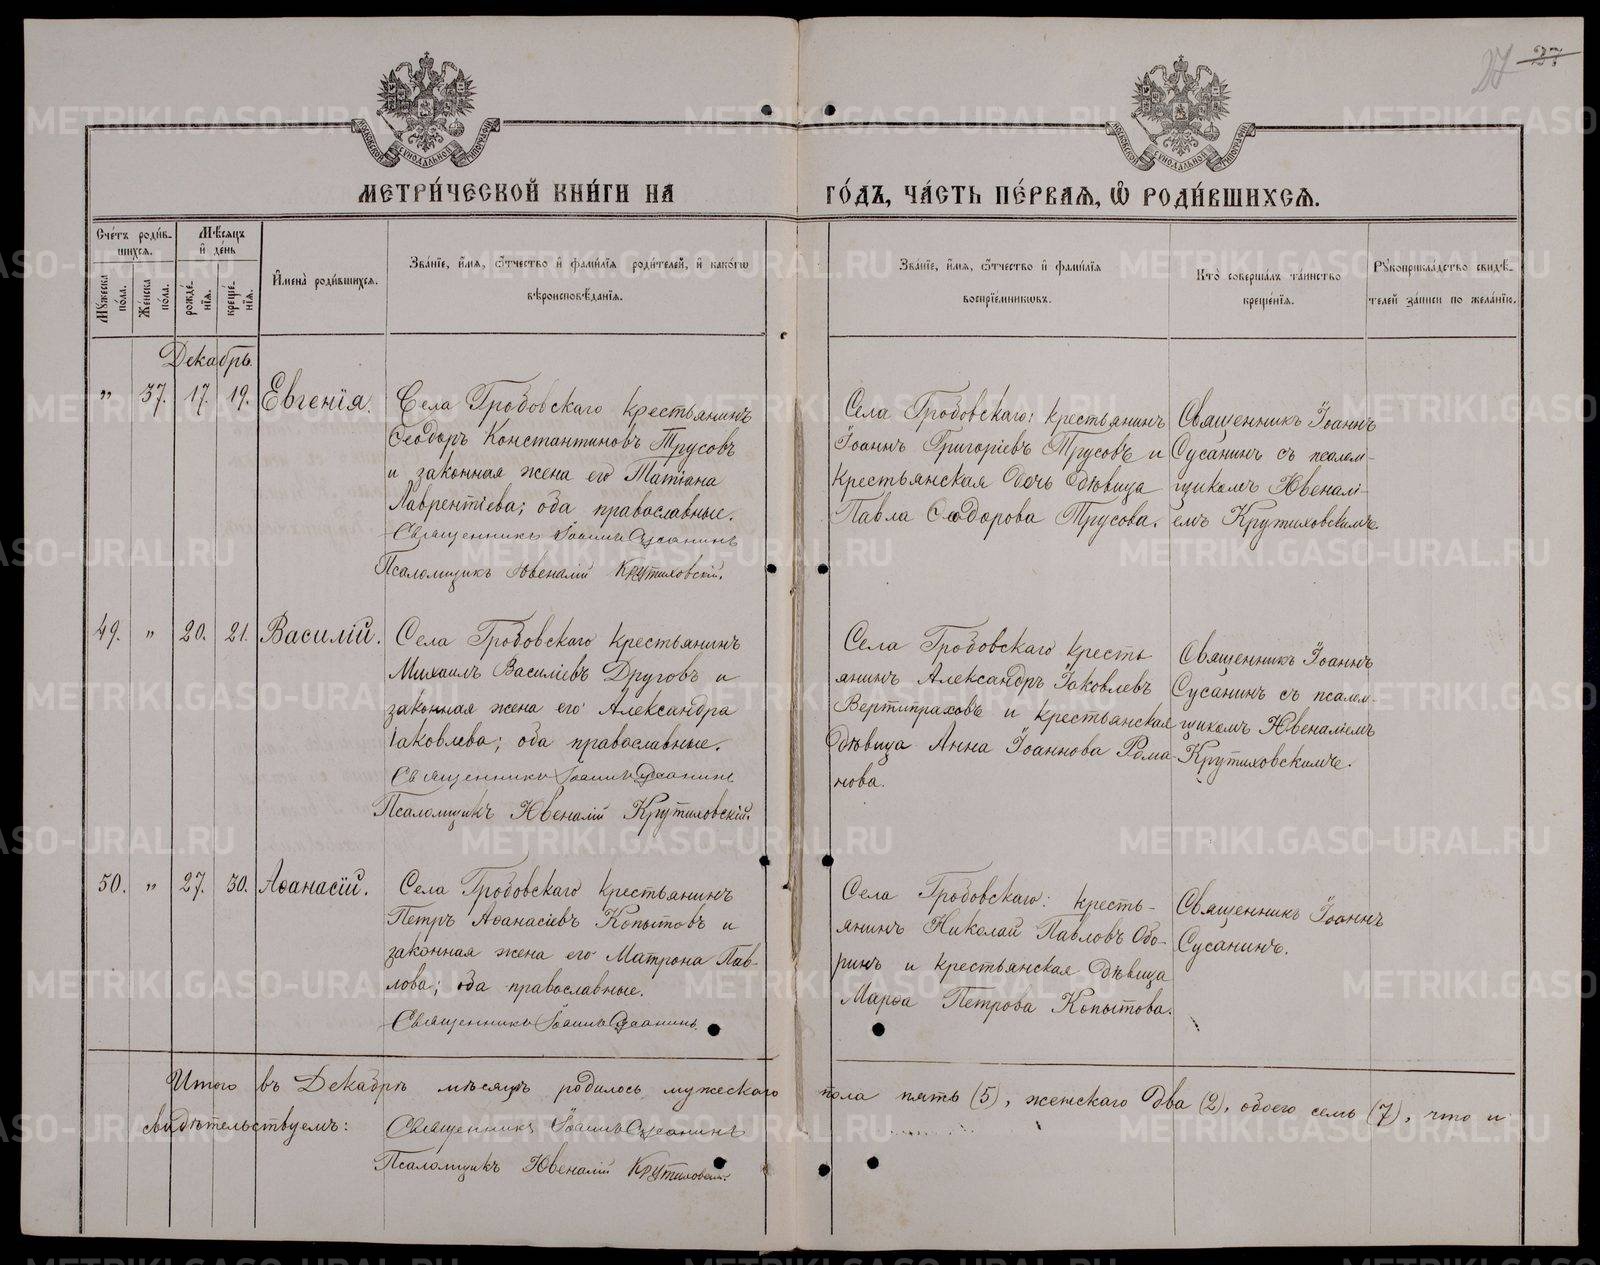 27 27
МОСКОВСКОЙ СѴНОДАЛЬНОЙ ТИПОГРАФІИ
МОСКОВСКОЙ СѴНОДАЛЬНОЙ ТИПОГРАФІИ
МЕТРИ́ЧЕСКОЙ КНИ́ГИ НА ГО́ДЪ, ЧА́СТЬ ПЕ́РВАѦ, Ѡ҆ РОДИ́ВШИХСѦ.
Сче́тъ роди́в-
шихсѧ.
Мꙋ́жеска по́ла.
Же́нска по́ла.
Мѣ́сѧцъ
и҆ де́нь
рожде́-
нїѧ.
креще́-
нїѧ.
И҆мена̀ роди́вшихсѧ.
Зва́нїе, и҆́мѧ, ѻ҆́тчество и҆ фами́лїѧ роди́телей, и҆ како́гѡ
вѣроисповѣ́данїѧ.
Зва́нїе, и҆́мѧ, ѻ҆́тчество и҆ фами́лїѧ
воспрїе́мникѡвъ.
Кто̀ соверша́лъ та́инство
креще́нїѧ.
Рꙋкоприкла́дство свидѣ́-
телей за́писи по жела́нїю.
Декабрь.
" 37. 17. 19. Евгенія.
Села Гробовскаго крестьянинъ
Ѳеодоръ Константиновъ Трусовъ
и законная жена его Татіана
Лаврентіева; оба православные.
Священникъ Іоаннъ Сусанинъ
Псаломщикъ Ювеналій Крутиховскій.
Села Гробовскаго: крестьянинъ
Іоаннъ Григоріевъ Трусовъ и
крестьянская дочь дѣвица
Павла Ѳеодорова Трусова.
Священникъ Іоаннъ
Сусанинъ съ псалом-
щикомъ Ювеналі-
емъ Крутиховскимъ.
49. " 20. 21. Василій.
Села Гробовскаго крестьянинъ
Михаилъ Василіевъ Друговъ и
законная жена его Александра
Іаковлева; оба православные.
Священникъ Іоаннъ Сусанинъ
Псаломщикъ Ювеналій Крутиховскій.
Села Гробовскаго кресть
янинъ Александръ Іаковлевъ
Вертипраховъ и крестьянская
дѣвица Анна Іоаннова Рома
нова.
Священникъ Іоаннъ
Сусанинъ съ псалом-
щикомъ Ювеналіемъ
Крутиховскимъ.
50. " 27. 30. Аѳанасій.
Села Гробовскаго крестьянинъ
Петръ Аѳанасіевъ Копытовъ и
законная жена его Матрона Пав-
лова; оба православные.
Священникъ Іоаннъ Сусанинъ.
Села Гробовскаго: кресть-
янинъ Николай Павловъ Обо-
ринъ и крестьянская дѣвица
Марѳа Петрова Копытова.
Священникъ Іоаннъ
Сусанинъ.
Итого въ Декабрѣ мѣсяцѣ родилось мужескаго пола пять (5), женскаго два (2), обоего семь (7), что и
свидѣтельствуемъ:
Священникъ Іоаннъ Сусанинъ
Псаломщикъ Ювеналій Крутиховскій.
METRIKI.GASO-URAL.RU